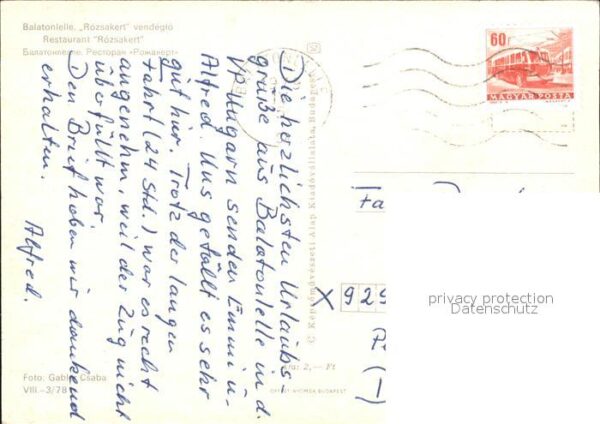 Balatonlelle. „Rózsakert" vendéglő
Restaurant "Rózsakert"
Балатонлелле. Ресторан «Рожакерт»
Die herzlichsten Urlaubs-
grüße aus Balatonlelle in d.
VP. Ungarn senden Emmi u.
Alfred. Uns gefällt es sehr
gut hier. Trotz der langen
Fahrt (24 Std.) war es recht
angenehm, weil der Zug nicht
überfüllt war.
Den Brief haben wir dankend
erhalten.
Alfred.
© Képzőművészeti Alap Kiadóvállalata, Budapest
60f
MAGYAR POSTA
Fa
X 929
privacy protection
Datenschutz
Ára: 2,— Ft
OFFSET-NYOMDA BUDAPEST
Foto: Gabler Csaba
VIII.-3/78